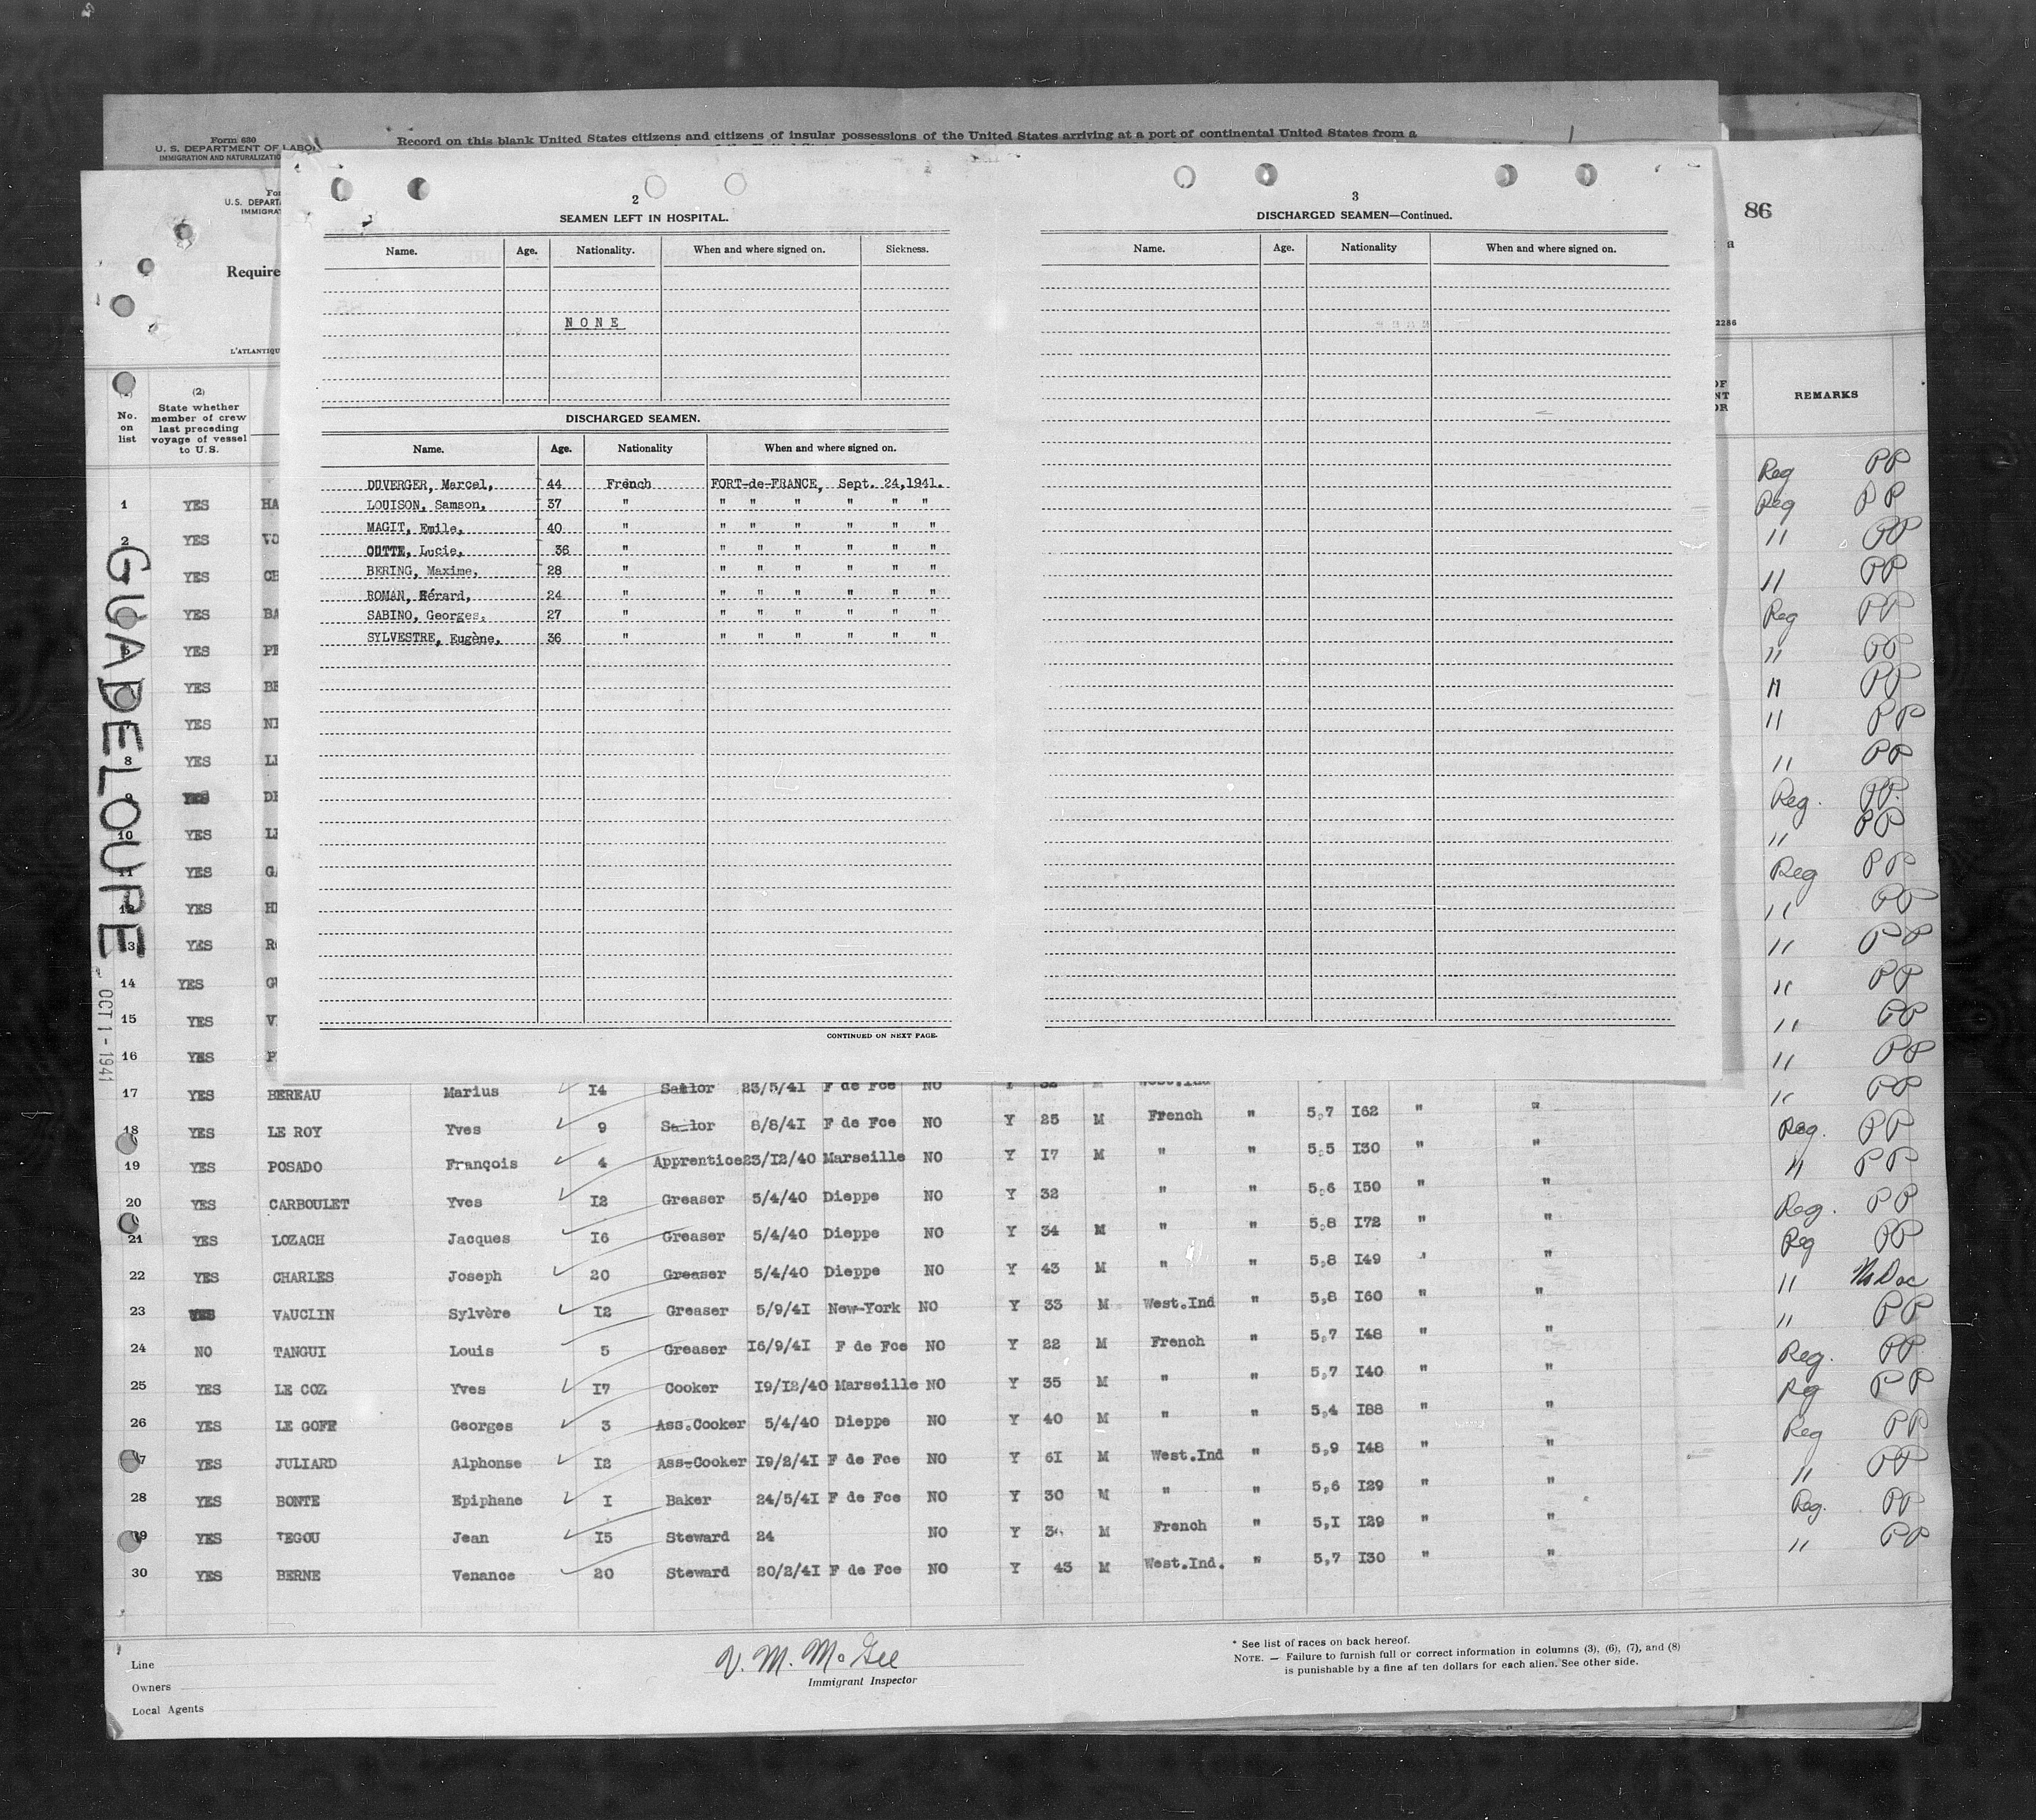 Form 630
U. S. DEPARTMENT OF LABOR
IMMIGRATION AND NATURALIZATION
Record on this blank United States citizens and citizens of insular possessions of the United States arriving at a port of continental United States from a
U.S. DEPART
IMMIGRAT
Require
L'ATLANTIQU
86
2286
2
SEAMEN LEFT IN HOSPITAL.
Name. Age. Nationality. When and where signed on. Sickness.
NONE
DISCHARGED SEAMEN.
Name. Age. Nationality When and where signed on.
DUVERGER, Marcel, 44 French FORT-de-FRANCE, Sept. 24,1941.
LOUISON, Samson, 37 " " " " " " "
MAGIT, Emile, 40 " " " " " " "
ODTTE, Lucie, 36 " " " " " " "
BERING, Maxime, 28 " " " " " " "
ROMAN, Gérard, 24 " " " " " " "
SABINO, Georges, 27 " " " " " " "
SYLVESTRE, Eugène, 36 " " " " " " "
CONTINUED ON NEXT PAGE.
3
DISCHARGED SEAMEN—Continued.
Name. Age. Nationality When and where signed on.
No. on list
(2)
State whether member of crew last preceding voyage of vessel to U.S.
REMARKS
GUADELOUPE
OCT 1 - 1941
1 YES HA Reg PP
2 YES VO Reg PP
YES CH " PP
YES BA " PP
YES PE Reg PP
YES BE " PP
7 YES NI " PP
8 YES LE " PP
9 YES DE " PP
10 YES LE Reg. PP.
11 YES GA " PP
12 YES HE Reg PP
13 YES RO " PP
14 YES GU " PP
15 YES V " PP
16 YES P " PP
17 YES BEREAU Marius 14 Sailor 23/5/41 F de Fce NO Y 32 M West.Ind
18 YES LE ROY Yves 9 Sailor 8/8/41 F de Fce NO Y 25 M French " 5,7 162 " " Reg. PP
19 YES POSADO François 4 Apprentice 23/12/40 Marseille NO Y 17 M " " 5,5 130 " " " PP
20 YES CARBOULET Yves 12 Greaser 5/4/40 Dieppe NO Y 32 " " 5,6 150 " " Reg. PP
21 YES LOZACH Jacques 16 Greaser 5/4/40 Dieppe NO Y 34 M " " 5,8 172 " " Reg PP
22 YES CHARLES Joseph 20 Greaser 5/4/40 Dieppe NO Y 43 M " " 5,8 149 " " " No Doc
23 YES VAUCLIN Sylvère 12 Greaser 5/9/41 New-York NO Y 33 M West.Ind " 5,8 160 " " " PP
24 NO TANGUI Louis 5 Greaser 16/9/41 F de Fce NO Y 22 M French " 5,7 148 " " Reg. PP
25 YES LE COZ Yves 17 Cooker 19/12/40 Marseille NO Y 35 M " " 5,7 140 " " Reg PP
26 YES LE GOFF Georges 3 Ass.Cooker 5/4/40 Dieppe NO Y 40 M " " 5,4 188 " " Reg PP
27 YES JULIARD Alphonse 12 Ass-Cooker 19/2/41 F de Fce NO Y 61 M West.Ind " 5,9 148 " " " PP
28 YES BONTE Epiphane 1 Baker 24/5/41 F de Fce NO Y 30 M " " 5,6 129 " " Reg. PP
29 YES TEGOU Jean 15 Steward 24 NO Y M French " 5,1 129 " " " PP
30 YES BERNE Venance 20 Steward 20/2/41 F de Fce NO Y 43 M West.Ind. " 5,7 130 " "
Line
Owners
Local Agents
V. M. McGee
Immigrant Inspector
* See list of races on back hereof.
NOTE. — Failure to furnish full or correct information in columns (3), (6), (7), and (8)
is punishable by a fine af ten dollars for each alien. See other side.